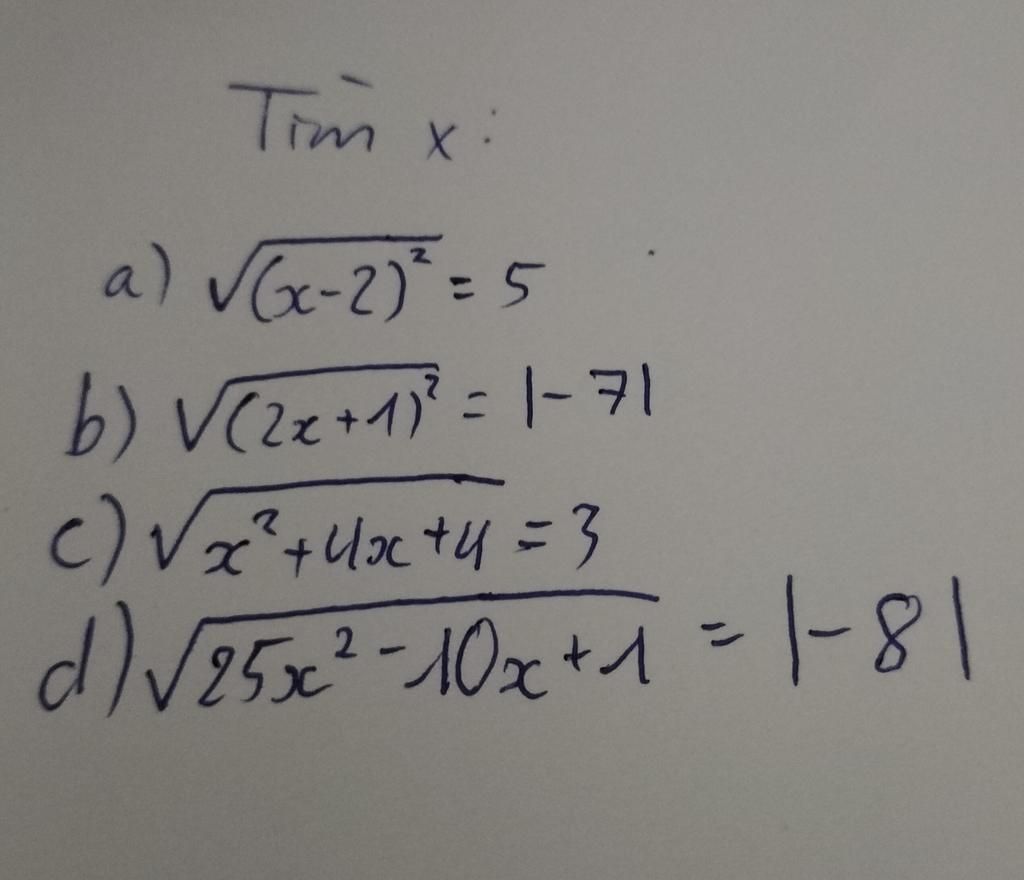 Tìm x:
a) √(x-2)² = 5
b) √(2x+1)² = |-7|
c) √x²+4x+4 = 3
d) √25x²-10x+1 = |-8|